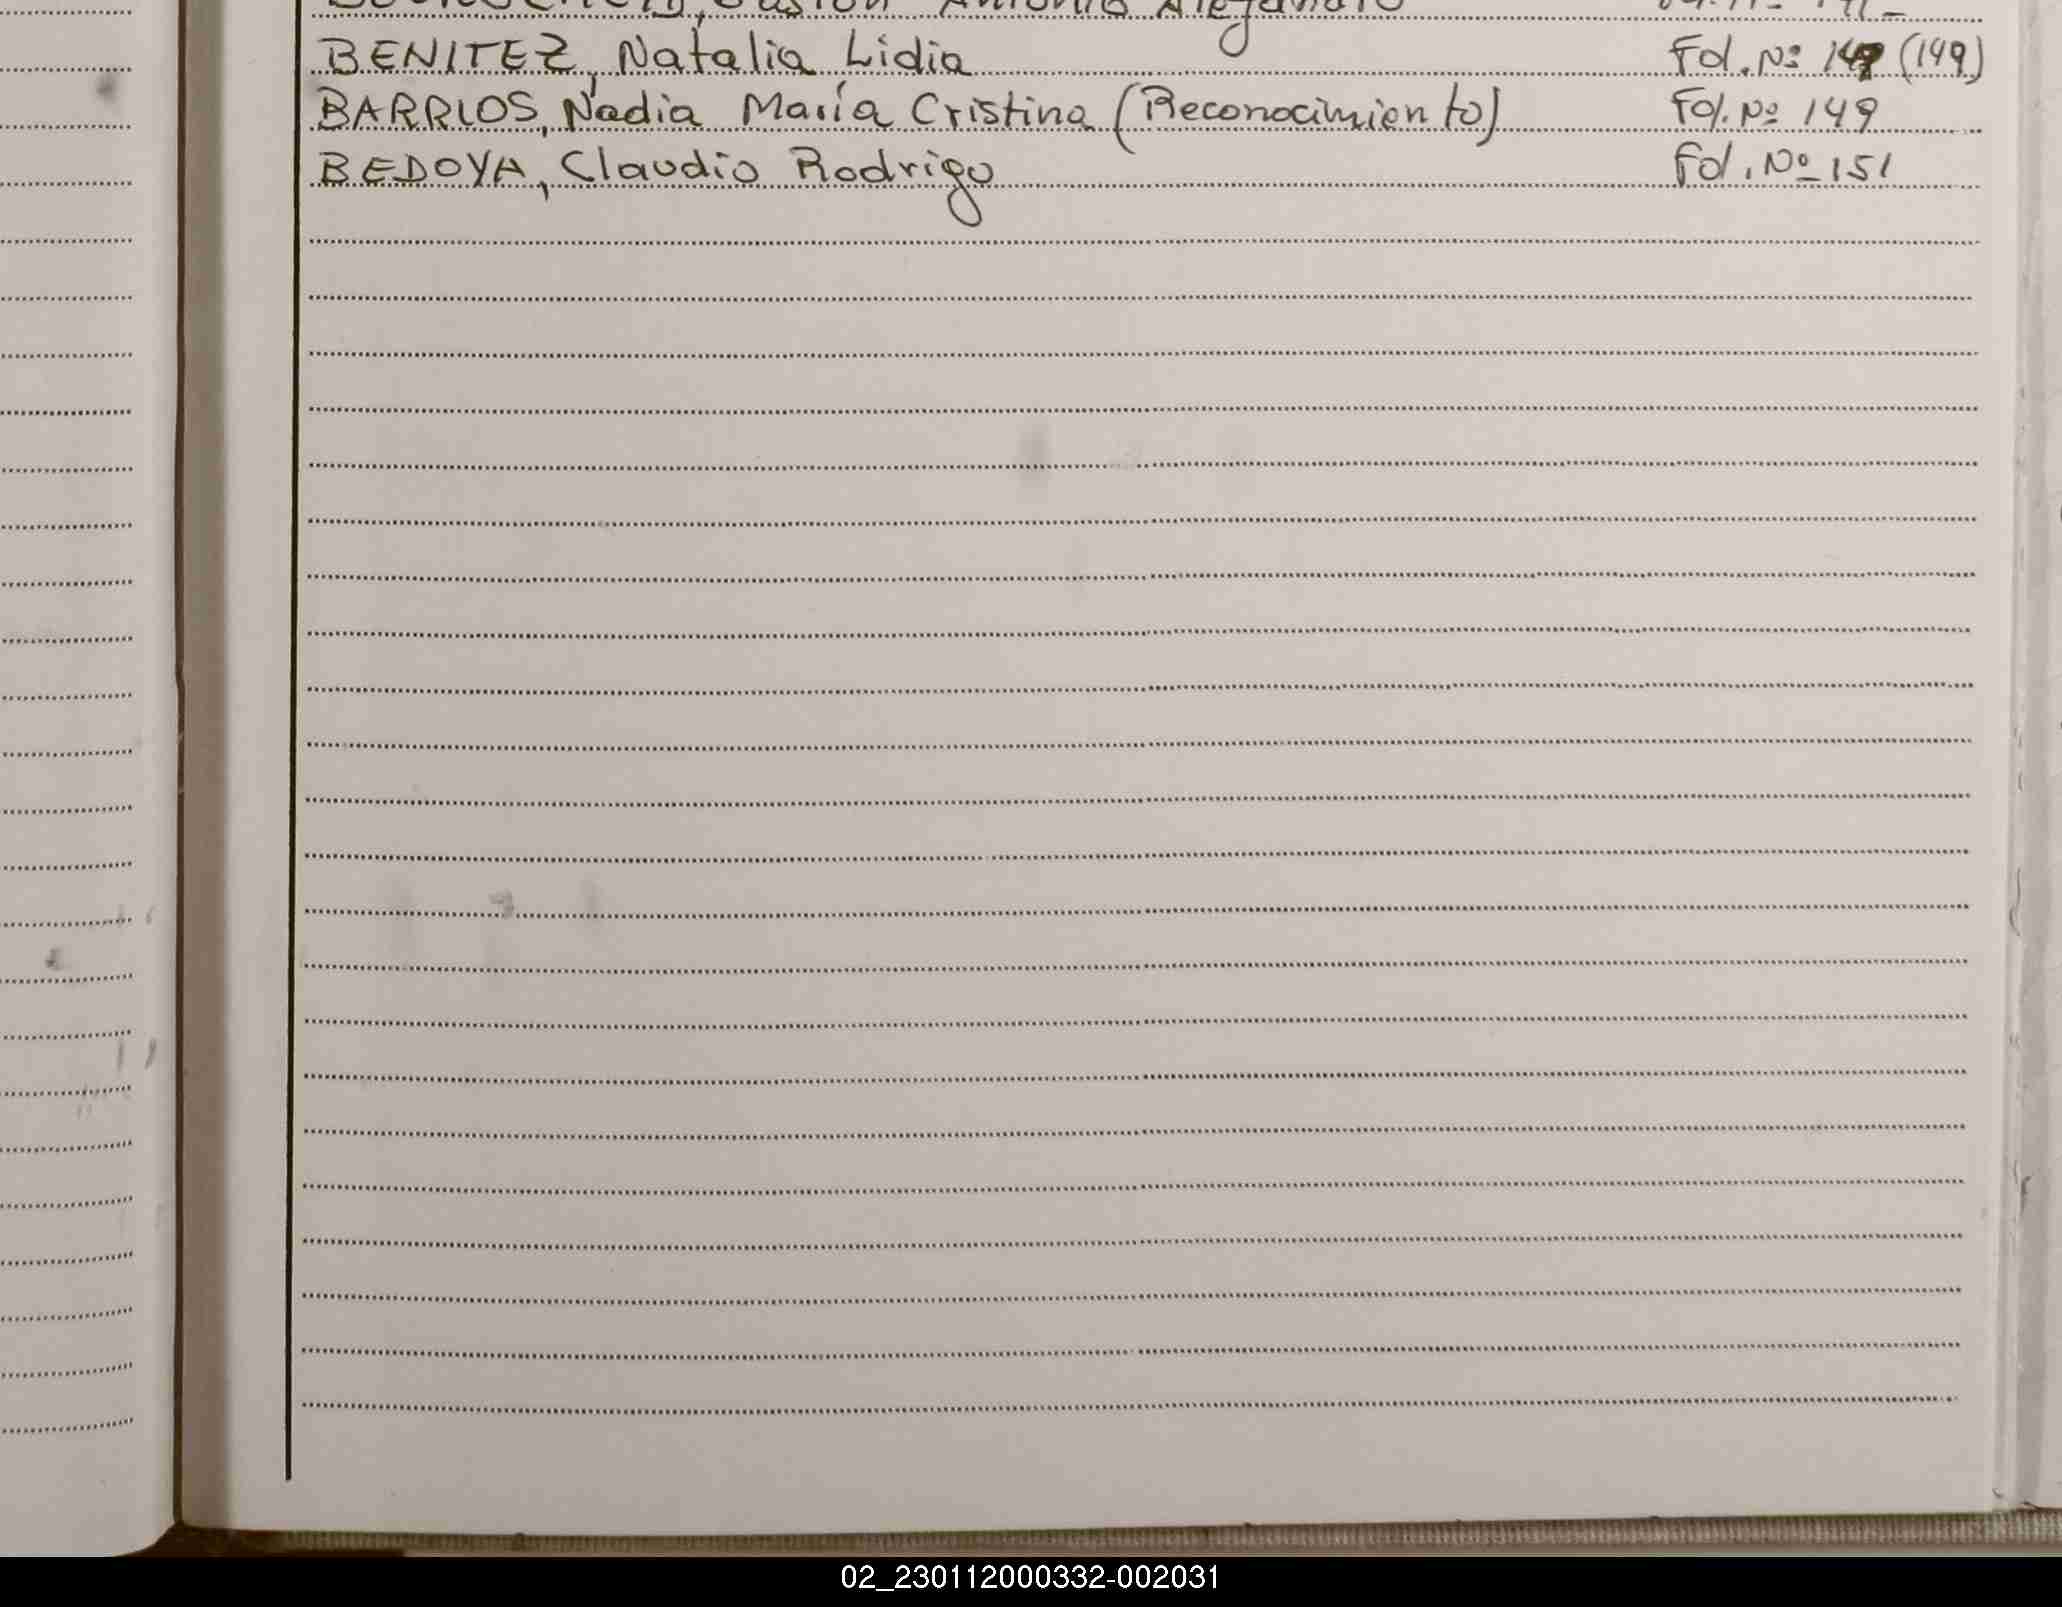 Antonio Alejandro
BENITEZ, Natalia Lidia Fol. Nº 149 (149)
BARRIOS, Nadia María Cristina (Reconocimiento) Fol. Nº 149
BEDOYA, Claudio Rodrigo Fol. Nº 151
02_230112000332-002031